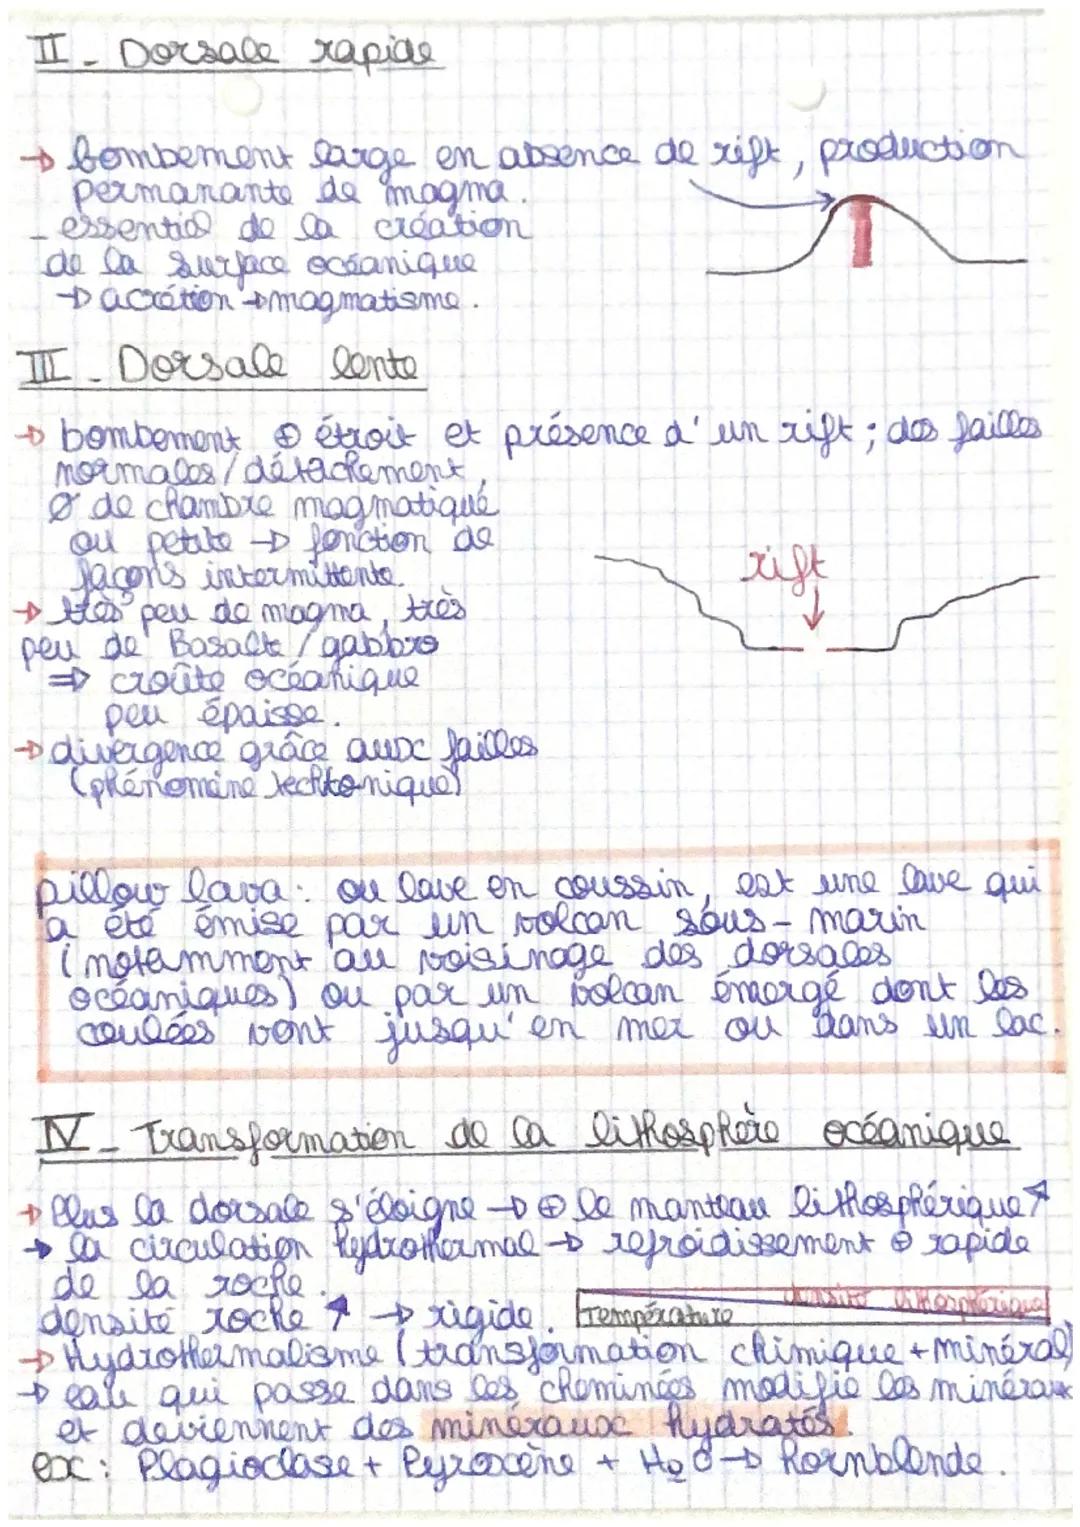 II - Dorsale rapide
→ bombement large en absence de rift, production
permanante de magma.
- essentiel de la création
de la surface océanique
→ acrétion → magmatisme.
III - Dorsale lente
→ bombement ⊕ étroit et présence d'un rift ; des failles
normales / détachement,
Ø de chambre magmatique
ou petite → fonction de
façons intermittente.
rift
→ très peu de magma, très
peu de Basalte / gabbro
⇒ croûte océanique
peu épaisse.
→ divergence grâce aux failles
(phénomène techtonique)
pillow lava : ou lave en coussin, est une lave qui
a été émise par un volcan sous-marin
(notamment au voisinage des dorsales
océaniques) ou par un volcan émergé dont les
coulées vont jusqu'en mer ou dans un lac.
IV - Transformation de la lithosphère océanique
→ Plus la dorsale s'éloigne → ⊕ le manteau lithosphérique ↗
→ la circulation hydrothermal → refroidissement ⊕ rapide
de la roche.
densité roche ↗ → rigide.
Température densité lithosphérique
→ Hydrothermalisme (transformation chimique + minéral)
→ eau qui passe dans les cheminées modifie les minéraux
et deviennent des minéraux hydratés.
ex : Plagioclase + Pyroxène + H₂O → hornblende.